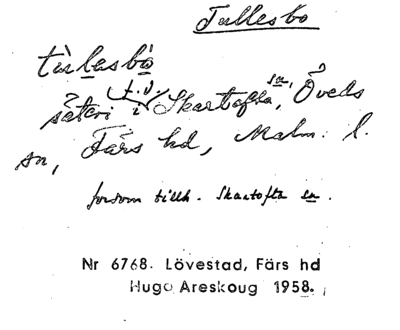 Tullesbo
tùlasbò
säteri f.d. i Skartofta sn, Öveds
sn, Färs hd, Malm. l.
försom tillh. Skartofta sn.
Nr 6768. Lövestad, Färs hd
Hugo Areskoug 1958.